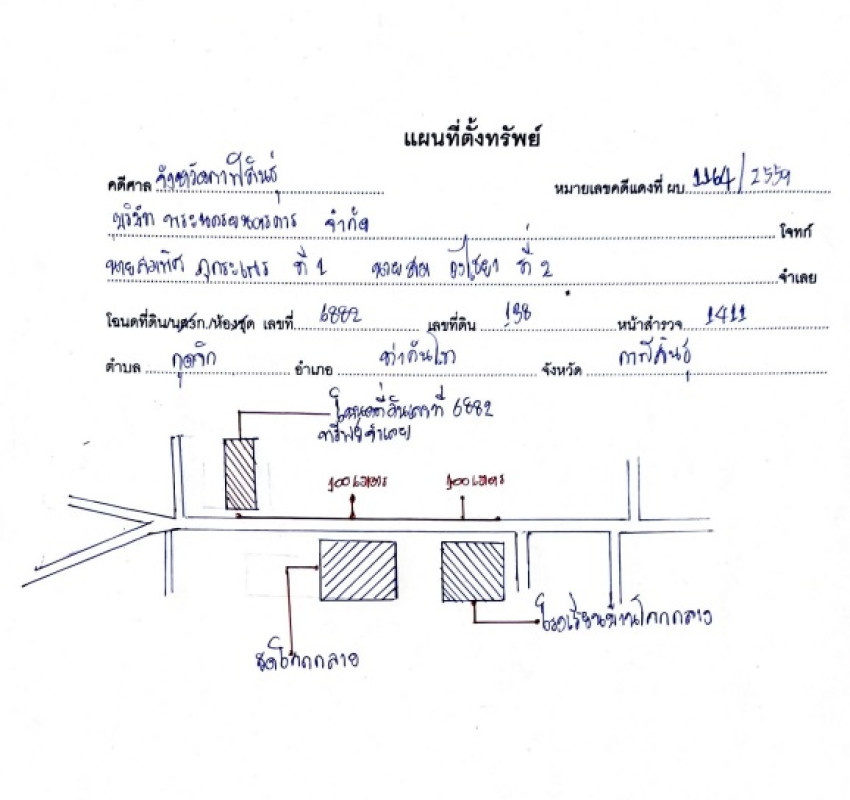 แผนที่ตั้งทรัพย์
คดีศาล จังหวัดกาฬสินธุ์ หมายเลขคดีแดงที่ ผบ 1164/2559
บริษัท พระนครยนตรการ จำกัด โจทก์
นายสมเกียรติ ที่ 1 นาย ที่ 2 จำเลย
โฉนดที่ดิน/นส3ก./ห้องชุด เลขที่ 6882 เลขที่ดิน 138 หน้าสำรวจ 1411
ตำบล กุดจิก อำเภอ ท่าคันโท จังหวัด กาฬสินธุ์
โฉนดที่ดินเลขที่ 6882
ทรัพย์จำเลย
100 เมตร 100 เมตร
โรงเรียนบ้านโคกกลาง
วัดโคกกลาง